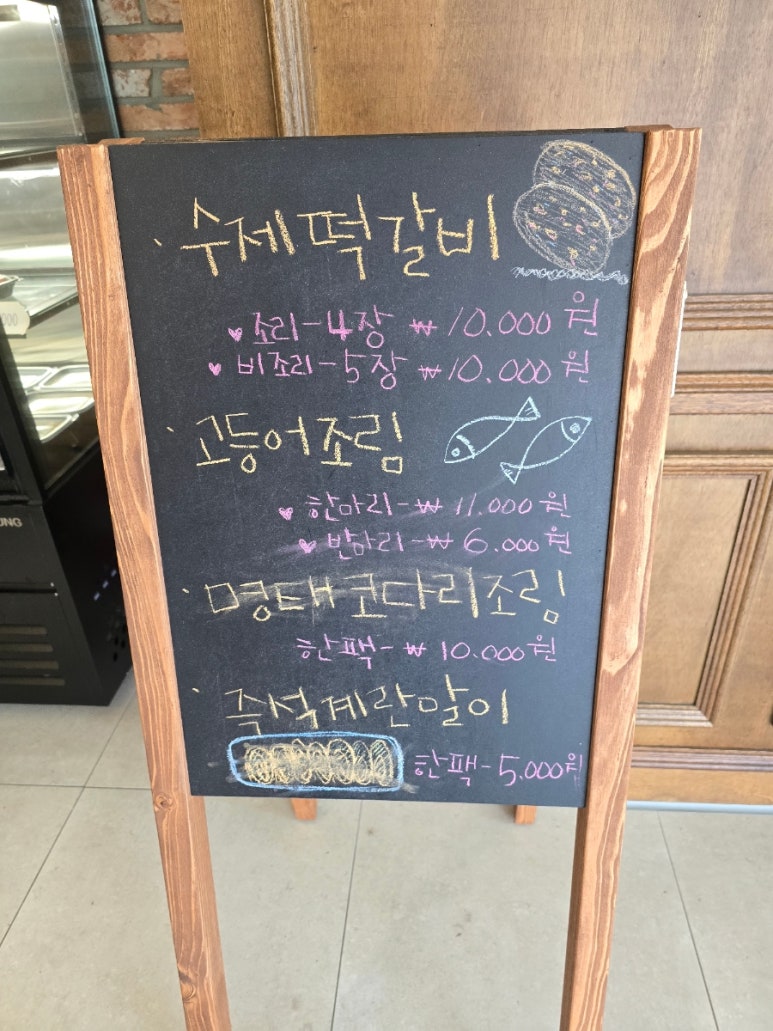 · 수제떡갈비
♥ 조리-4장 ₩10.000원
♥ 비조리-5장 ₩10.000원
· 고등어조림
♥ 한마리-₩11.000원
♥ 반마리-₩6.000원
· 명태코다리조림
한팩-₩10.000원
· 즉석계란말이
한팩-5.000원